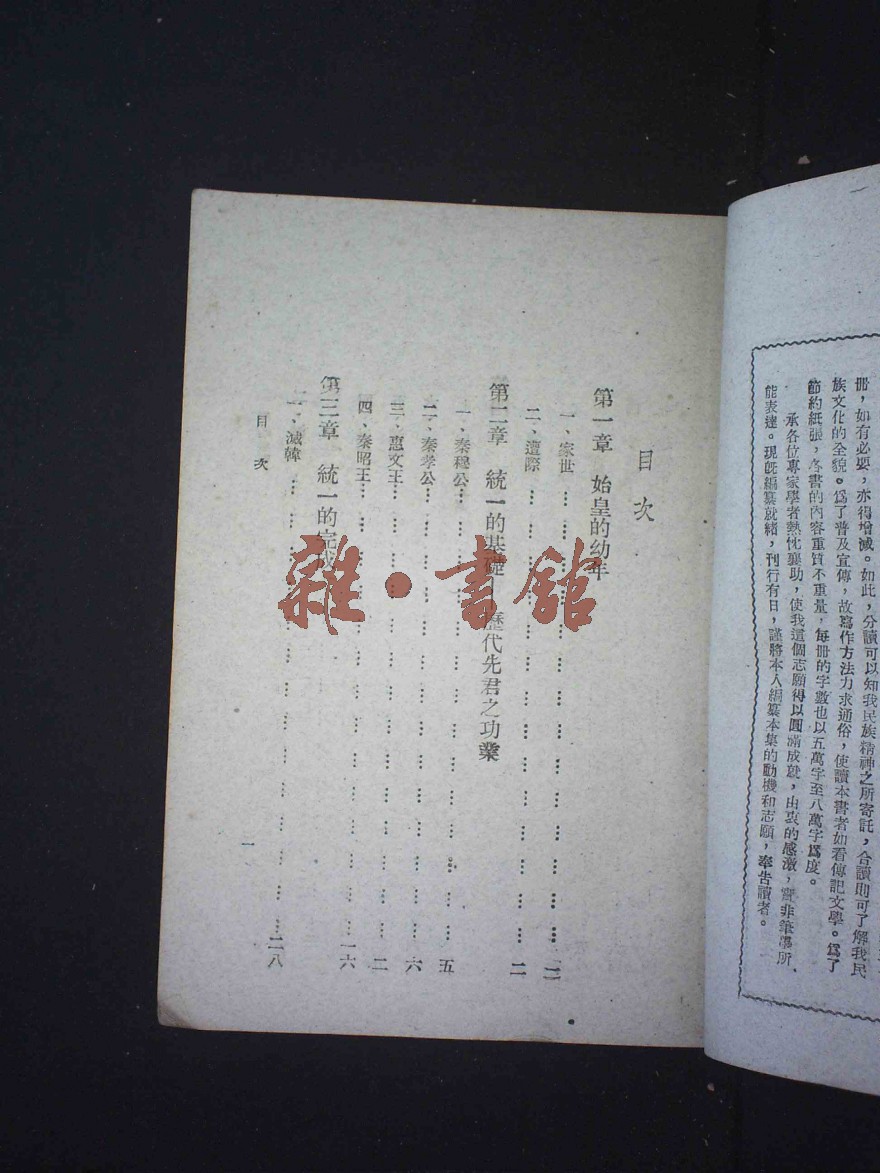 冊，如有必要，亦得增減。如此，分讀可以知我民族精神之所寄託，合讀則可了解我民
族文化的全貌。爲了普及宣傳，故寫作方法力求通俗，使讀本書者如看傳記文學。爲了
節約紙張，各書的內容重質不重量，每冊的字數也以五萬字至八萬字爲度。
承各位專家學者熱忱襄助，使我這個志願得以圓滿成就，由衷的感激，實非筆墨所
能表達。現旣編纂就緒，刊行有日，謹將本人編纂本集的動機和志願，奉告讀者。
目次
第一章　始皇的幼年
一、家世……
二、遭際……二
第二章　統一的基礎—歷代先君之功業
一、秦穆公……五
二、秦孝公……六
三、惠文王……
四、秦昭王……一六
第三章　統一的完成
一、滅韓……二八
目次
一
雜·書館